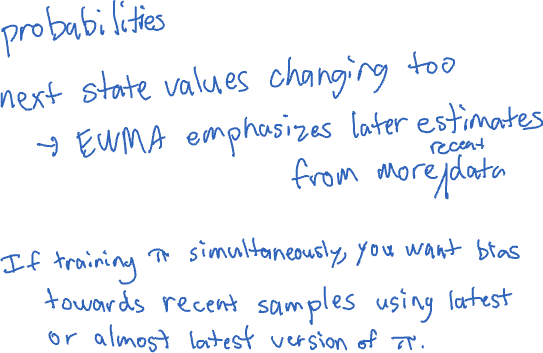 probabilities
next state values changing too
→ EWMA emphasizes later estimates
from more recent data
If training π simultaneously, you want bias
towards recent samples using latest
or almost latest version of π.